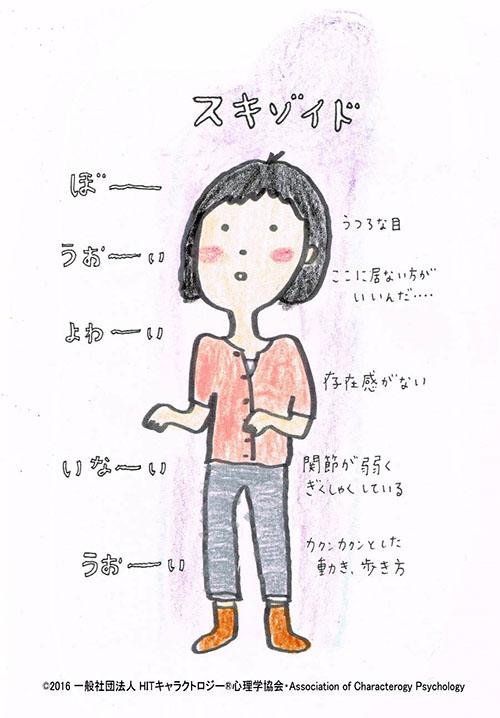 スキゾイド
ぼ〜
うつろな目
うお〜い
ここに居ない方が
いいんだ‥‥
よわ〜い
存在感がない
いな〜い
関節が弱く
ぎくしゃくしている
うお〜い
カクンカクンとした
動き、歩き方
©2016 一般社団法人 HITキャラクトロジー®心理学協会・Association of Characterogy Psychology